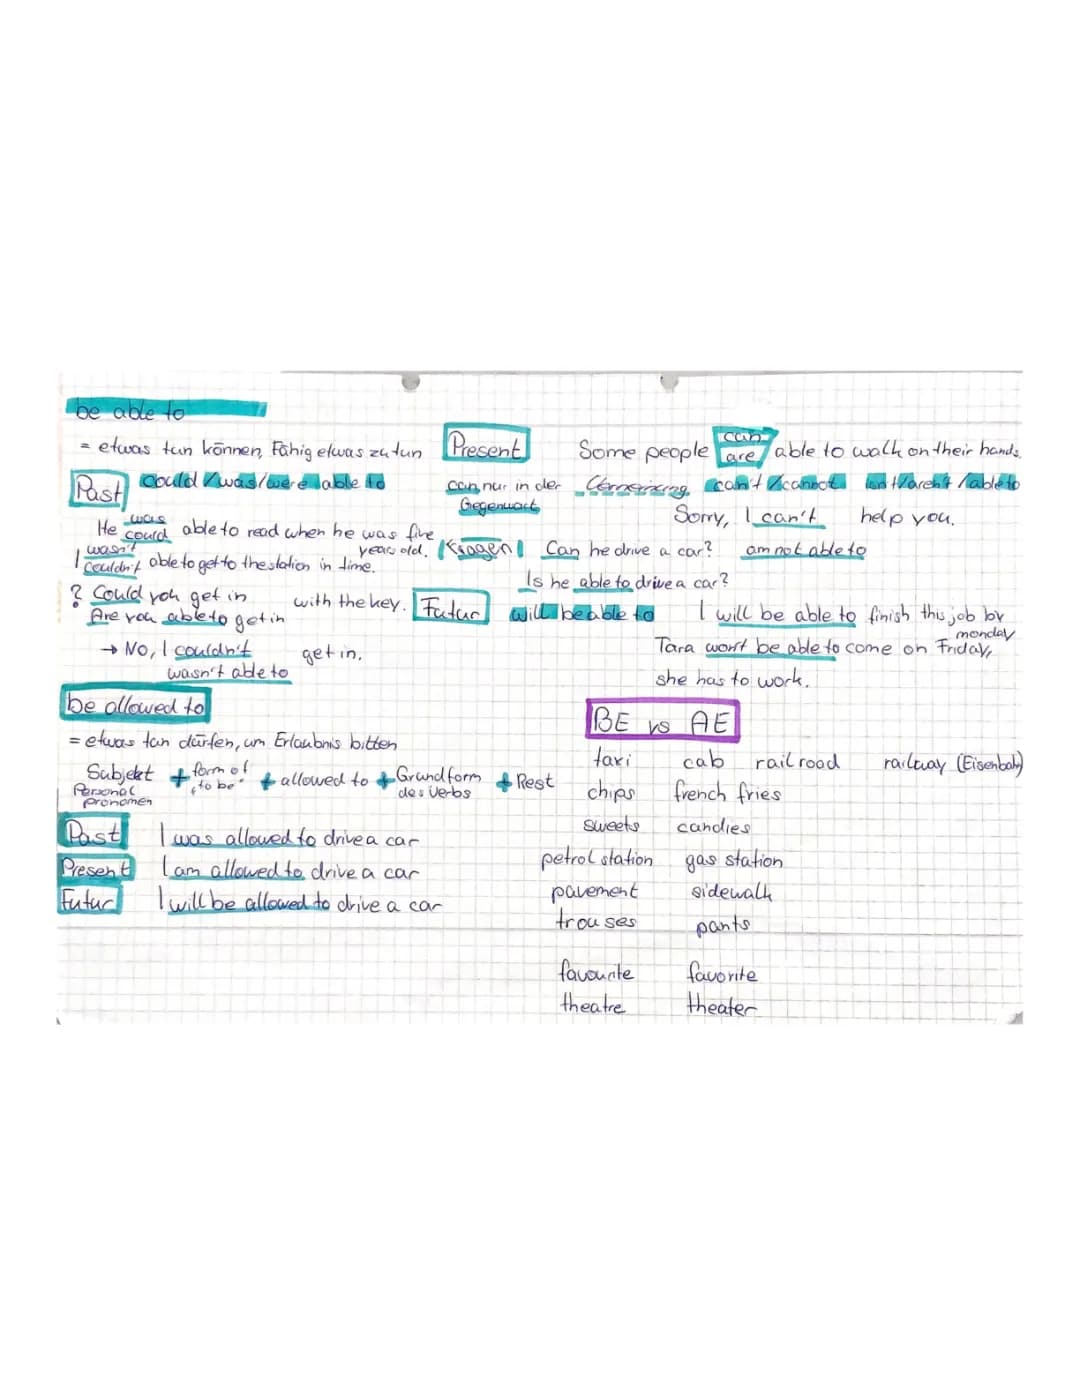 be able to
= etwas tun können, Fähig etwas zu tun
Present
Some people can/are able to walk on their hands.
Past
could / was/were able to
can nur in der Gegenwart
can't / cannot isn't/aren't /able to
Sorry, I can't help you.
am not able to
He was
could able to read when he was five years old.
I wasn't
couldn't able to get to the station in time.
Fragen
Can he drive a car?
Is he able to drive a car?
? Could you get in with the key.
Are you able to get in
→ No, I couldn't get in.
wasn't able to
Futur
will be able to
I will be able to finish this job by monday
Tara won't be able to come on Friday,
she has to work.
be allowed to
= etwas tun dürfen, um Erlaubnis bitten
Subjekt + form of "to be" + allowed to + Grundform des Verbs + Rest
Personal pronomen
Past I was allowed to drive a car
Present I am allowed to drive a car
Futur I will be allowed to drive a car
BE vs AE
taxi cab railroad railway (Eisenbahn)
chips french fries
sweets candies
petrol station gas station
pavement sidewalk
trouses pants
favourite favorite
theatre theater